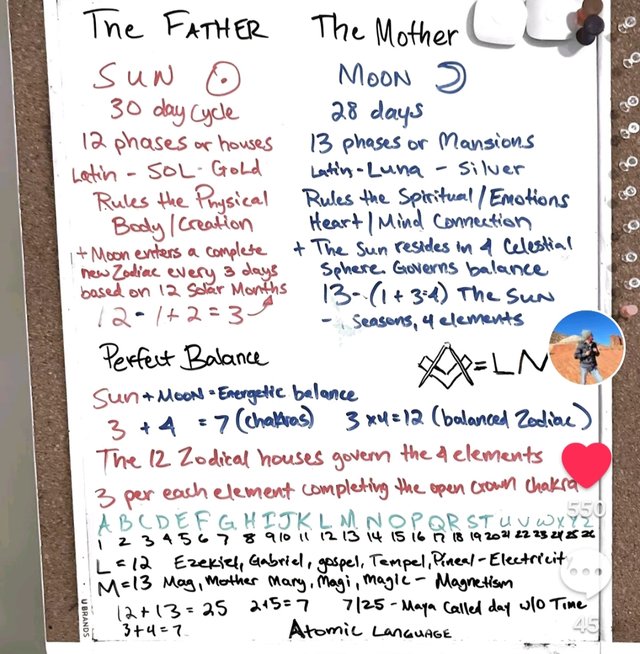 The FATHER
The Mother
SUN
MOON
30 day cycle
28 days
12 phases or houses
13 phases or Mansions
Latin - SOL - Gold
Latin - Luna - Silver
Rules the Physical
Body/Creation
Rules the Spiritual/Emotions
Heart/Mind Connection
+ Moon enters a complete
new Zodiac every 3 days
based on 12 Solar Months
12 - 1+2=3
+ The Sun resides in 4 Celestial
Sphere. Governs balance
13 - (1+3=4) The Sun
- Seasons, 4 elements
Perfect Balance
= LM
Sun + Moon = Energetic balance
3 + 4 = 7 (chakras) 3x4=12 (balanced Zodiac)
The 12 Zodical houses govern the 4 elements
3 per each element completing the open crown chakra
A B C D E F G H I J K L M N O P Q R S T U V W X Y Z
1 2 3 4 5 6 7 8 9 10 11 12 13 14 15 16 17 18 19 20 21 22 23 24 25 26
L=12 Ezekiel, Gabriel, gospel, Tempel, Pineal - Electricity
M=13 Mag, Mother Mary, Magi, Magic - Magnetism
12+13=25 2+5=7 7/25 - Maya Called day w/o Time
3+4=7
Atomic Language
U BRANDS
550
45